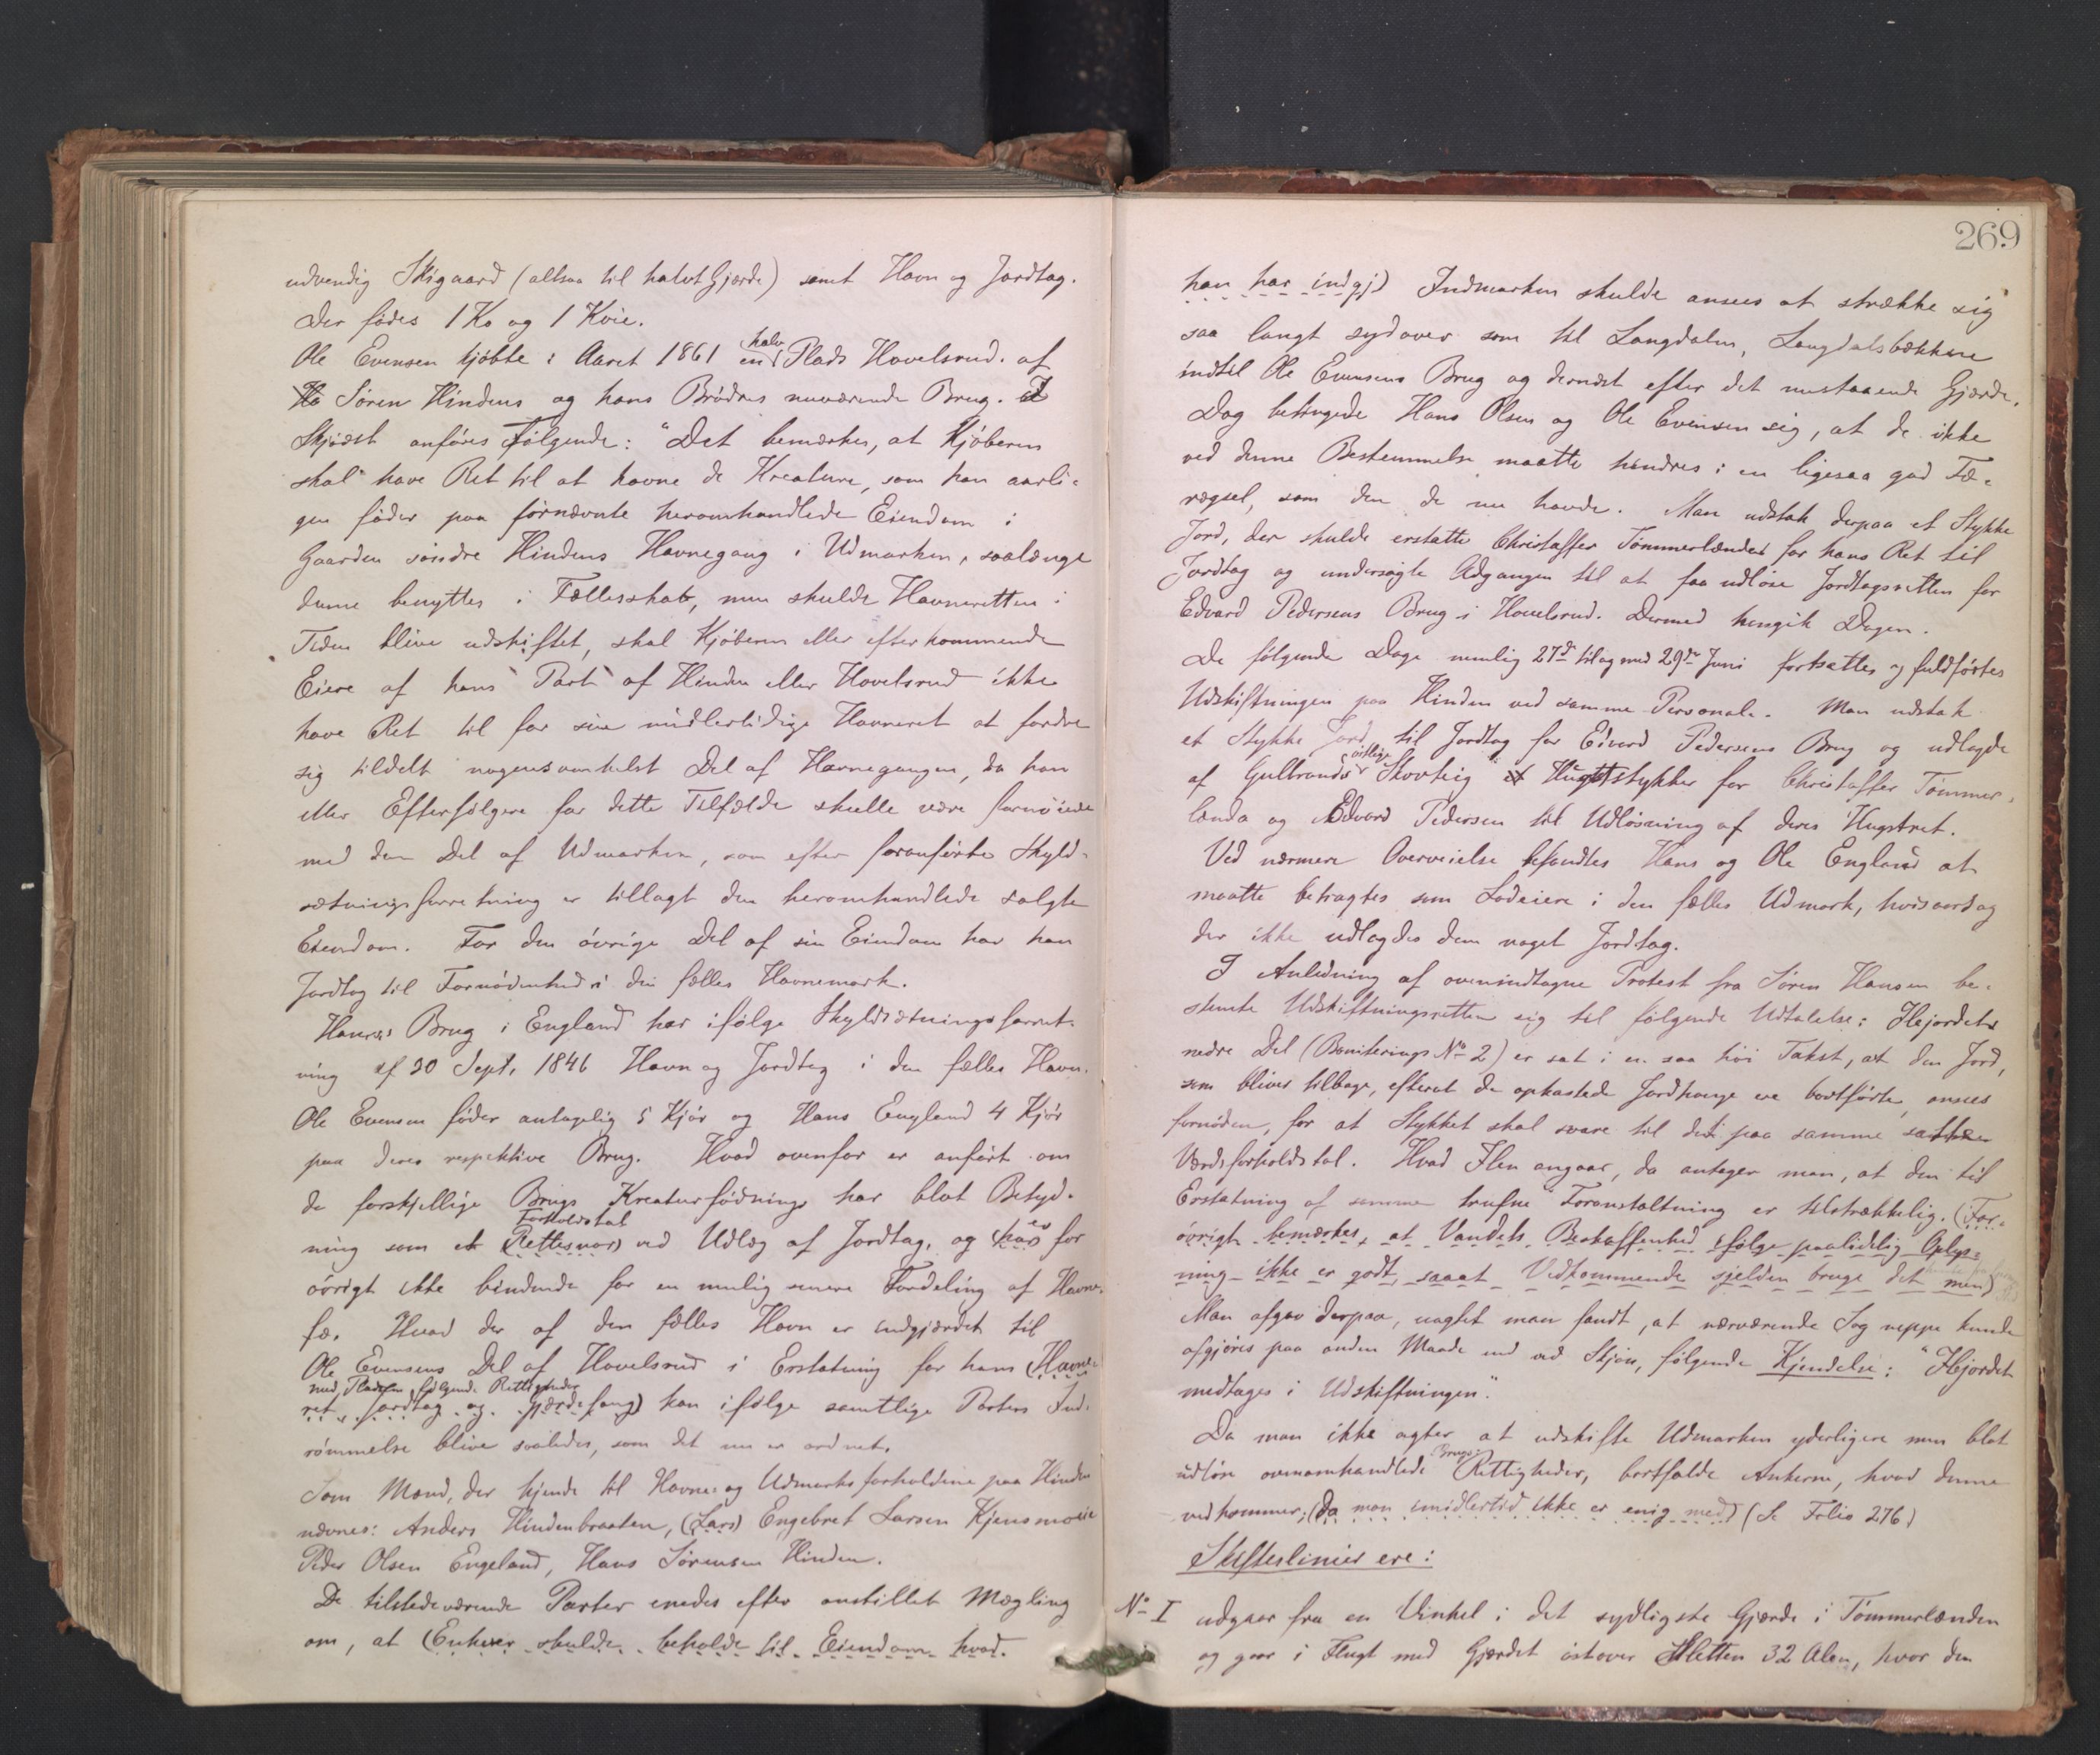 udvendig Skigaard (altsaa til halvt Gjærde) samt Havn og Jordtag.
Der födes 1 Ko og 1 Kvie.
Ole Evensen kjöbte i Aaret 1861 en halv Plads Hovelsrud af
Ha Sören Hindens og hans Brödres nuværende Brug. I
Skjödet anföres Fölgende: "Det bemærkes, at Kjöberen
skal have Ret til at havne de Kreature, som han aarli-
gen föder paa fornævnte heromhandlede Eiendom i
Gaarden söndre Hindens Havnegang i Udmarken, saalænge
denne benyttes i Fællesskab, men skulde Havneretten i
Tiden blive udskiftet, skal Kjöberen eller efterkommende
Eiere af hans Part af Hinden eller Hovelsrud ikke
have Ret til for sin midlertidige Havneret at fordre
sig tildelt nogensomhelst Del af Havnegangen, da han
eller Efterfölgere for dette Tilfælde skulle være fornöiede
med den Del af Udmarken, som efter foranförte Skyld-
sætningsforretning er tillagt den heromhandlede solgte
Eiendom. For den övrige Del af sin Eiendom har han
Jordtag til Fornödenhed i den fælles Havnemark.
Hanses Brug i England har ifölge Skyldsætningsforret-
ning af 30 Sept. 1846 Havn og Jordtag i den fælles Havn.
Ole Evensen föder antagelig 5 Kjör og Hans England 4 Kjör
paa deres respektive Brug. Hvad ovenfor er anfört om
de forskjellige Brugs Kreaturfödning har blot Betyd-
ning som et (Rettesnor) Forholdstal ved Udlæg af Jordtag, og (har) er for
övrigt ikke bindende for en mulig senere Fordeling af Havne-
fæ. Hvad der af den fælles Havn er indgjærdet til
Ole Evensens Del af Hovelsrud i Erstatning for hans (Havne-
med Pladsen fölgende Rettigheder
ret, Jordtag og Gjærdefang) kan ifölge samtlige Parters Ind-
römmelse blive saaledes, som det nu er ordnet.
Som Mænd, der kjende til Havne- og Udmarksforholdene paa Hinden
nævnes: Anders Hindenbraaten, (Lars) Engebret Larsen Kjensmoeie
Peder Olsen Engeland, Hans Sörensen Hinden.
De tilstedeværende Parter enedes efter anstillet Mægling
om, at (Enhver skulde beholde til Eiendom hvad
269
han har indgj) Indmarken skulde ansees at strække sig
saa langt sydover som til Langdalen, Langdalsbækken
indtil Ole Evensens Brug og dernæst efter det nustaaende Gjærde.
Dog betingede Hans Olsen og Ole Evensen sig, at de ikke
ved denne Bestemmelse maatte hindres i en ligesaa god Fæ-
rægsel, som den de nu havde. Man udstak derpaa et Stykke
Jord, der skulde erstatte Christoffer Tömmerlænden for hans Ret til
Jordtag og undersögte Adgangen til at faa udlöse Jordtagsretten for
Edvard Pedersens Brug i Hovelsrud. Dermed hengik Dagen.
De fölgende Dage nemlig 27de til og med 29de Juni fortsattes og fuldförtes
Udskiftningen paa Hinden ved samme Personale. Man udstak
et Stykke Jord til Jordtag for Edvard Pedersens Brug og udlagde
af Gulbrands östlige Skovteig et Hugststykker for Christoffer Tömmer-
lænda og Edvard Pedersen til Udlösning af deres Hugstret.
Ved nærmere Overveielse befandtes Hans og Ole England at
maatte betragtes som Lodeiere i den fælles Udmark, hvisaarsag
der ikke udlagdes dem noget Jordtag.
I Anledning af ovenindtagne Protest fra Sören Hansen be-
stemte Udskiftningsretten sig til fölgende Udtalelse: Hejordets
nedre Del (Boniterings No 2) er sat i en saa höi Takst, at den Jord,
som bliver tilbage, efterat de opkastede Jordhauge ere bortförte, ansees
fornöden, for at Stykket skal svare til det paa samme satte
Værdsforholdstal. Hvad Ilen angaar, da antager man, at den til
Erstatning af samme trufne Foranstaltning er tilstrækkelig. (For-
övrigt bemærkes, at Vandets Beskaffenhed ifölge paalidelig Oplys-
ning ikke er godt, saaat Vedkommende sjelden bruge det men)
Man afgav derpaa, uagtet man fandt, at nærværende Sag neppe kunde
afgjöres paa anden Maade end ved Skjön, fölgende Kjendelse: "Hejordet
medtages i Udskiftningen".
Da man ikke agter at udskifte Udmarken yderligere men blot
udlöse ovenomhandlede Brugs-Rettigheder, bortfalde Ankerne, hvad denne
vedkommer, (da man imidlertid ikke er enig med) (Se Folio 276)
Skiftelinier ere:
No I udgaar fra en Vinkel i det sydligste Gjærde i Tömmerlænden
og gaar i Flugt med Gjærdet östover Sletten 32 Alen, hvor den